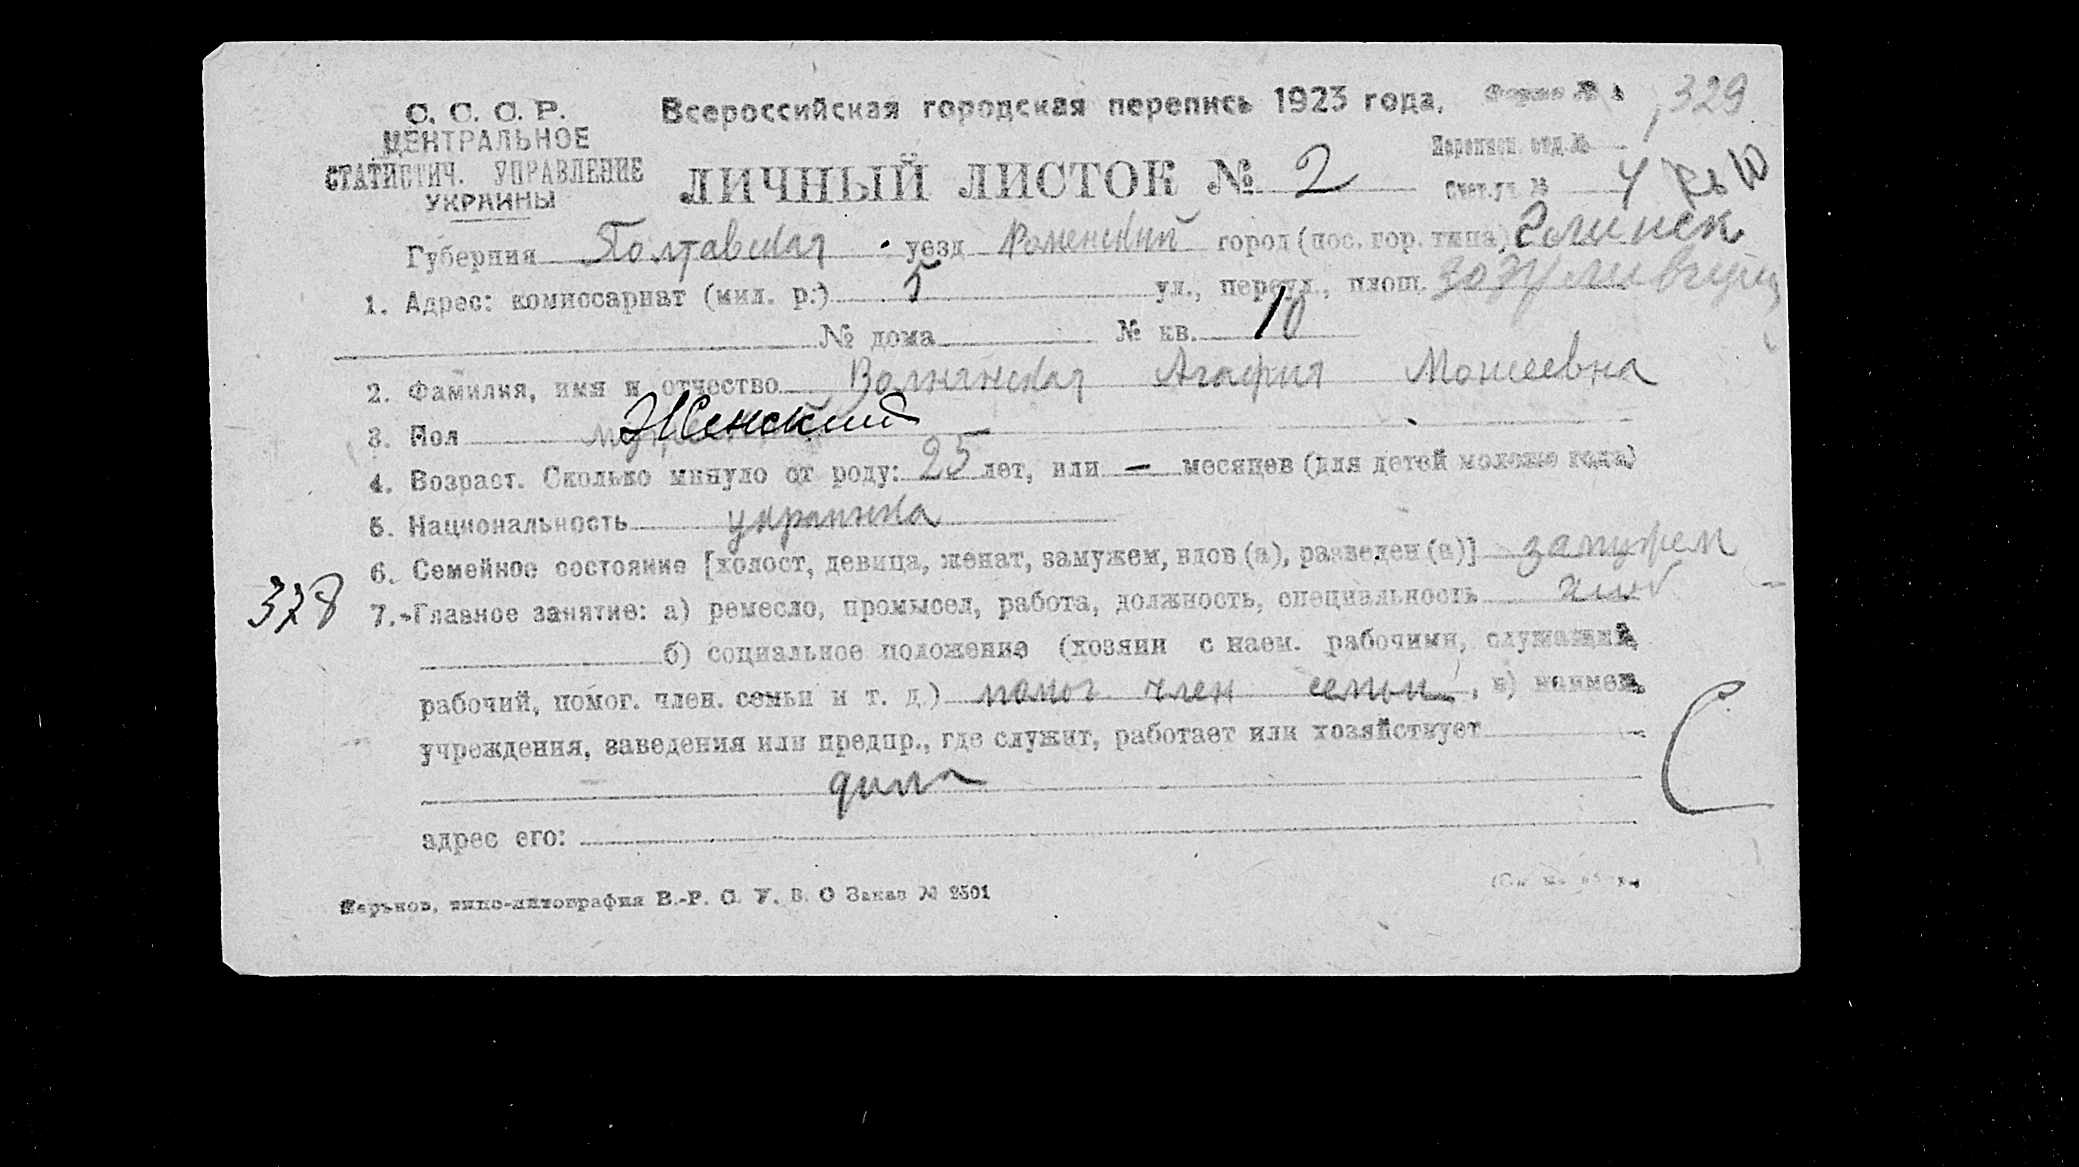 С. С. С. Р.
ЦЕНТРАЛЬНОЕ
СТАТИСТИЧ. УПРАВЛЕНИЕ
УКРАИНЫ
Всероссийская городская перепись 1923 года.
Форма № 329
ЛИЧНЫЙ ЛИСТОК № 2
Переписн. отд. №
Счет. уч. № 4
Губерния Полтавская уезд Роменский город (пос. гор. типа) Глинск
1. Адрес: комиссариат (мил. р.) 5 ул., переул., площ.
№ дома № кв. 10
2. Фамилия, имя и отчество Волнянская Агафия Моисеевна
3. Пол Женский
4. Возраст. Сколько минуло от роду: 25 лет, или — месяцев (для детей моложе года)
5. Национальность украинка
6. Семейное состояние [холост, девица, женат, замужем, вдов (а), разведен (а)] замужем
378
7. Главное занятие: а) ремесло, промысел, работа, должность, специальность
б) социальное положение (хозяин с наем. рабочими, служащий,
рабочий, помог. член. семьи и т. д.) помог член семьи, в) наимен.
учреждения, заведения или предпр., где служит, работает или хозяйствует
дома
адрес его:
Харьков, типо-литография В.-Р. С. У. В. О Заказ № 2501